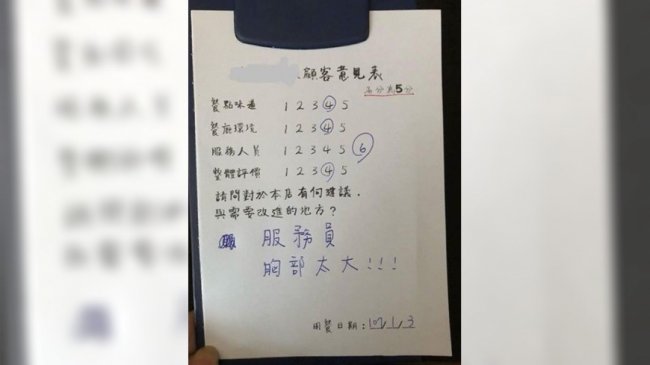 顧客意見表
滿分為5分
餐點味道 1 2 3 4 5
餐廳環境 1 2 3 4 5
服務人員 1 2 3 4 5 6
整體評價 1 2 3 4 5
請問對於本店有何建議,
與需要改進的地方?
服務員
胸部太大!!!
用餐日期:107/1/3